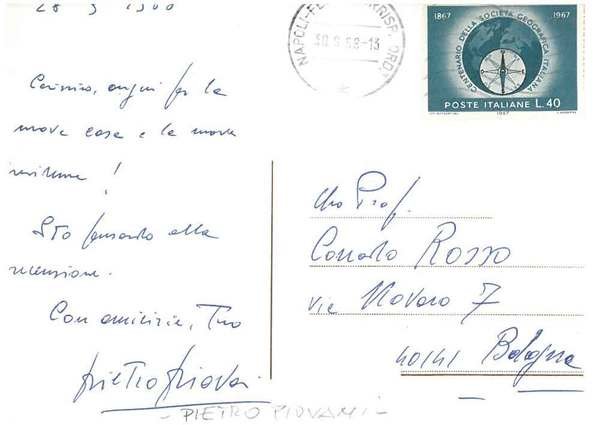 28 3 1968
NAPOLI-FE
30.3.68-13
1867 1967
CENTENARIO DELLA SOCIETÀ GEOGRAFICA ITALIANA
POSTE ITALIANE L. 40
1967
Carissimo, auguri per la
nuova casa e la nuova
!
Sto pensando alla
recensione.
Con amicizia, Tuo
Pietro Piovani
- PIETRO PIOVANI -
Prof.
Corrado Rosso
Via Novaro 7
40141 Bologna